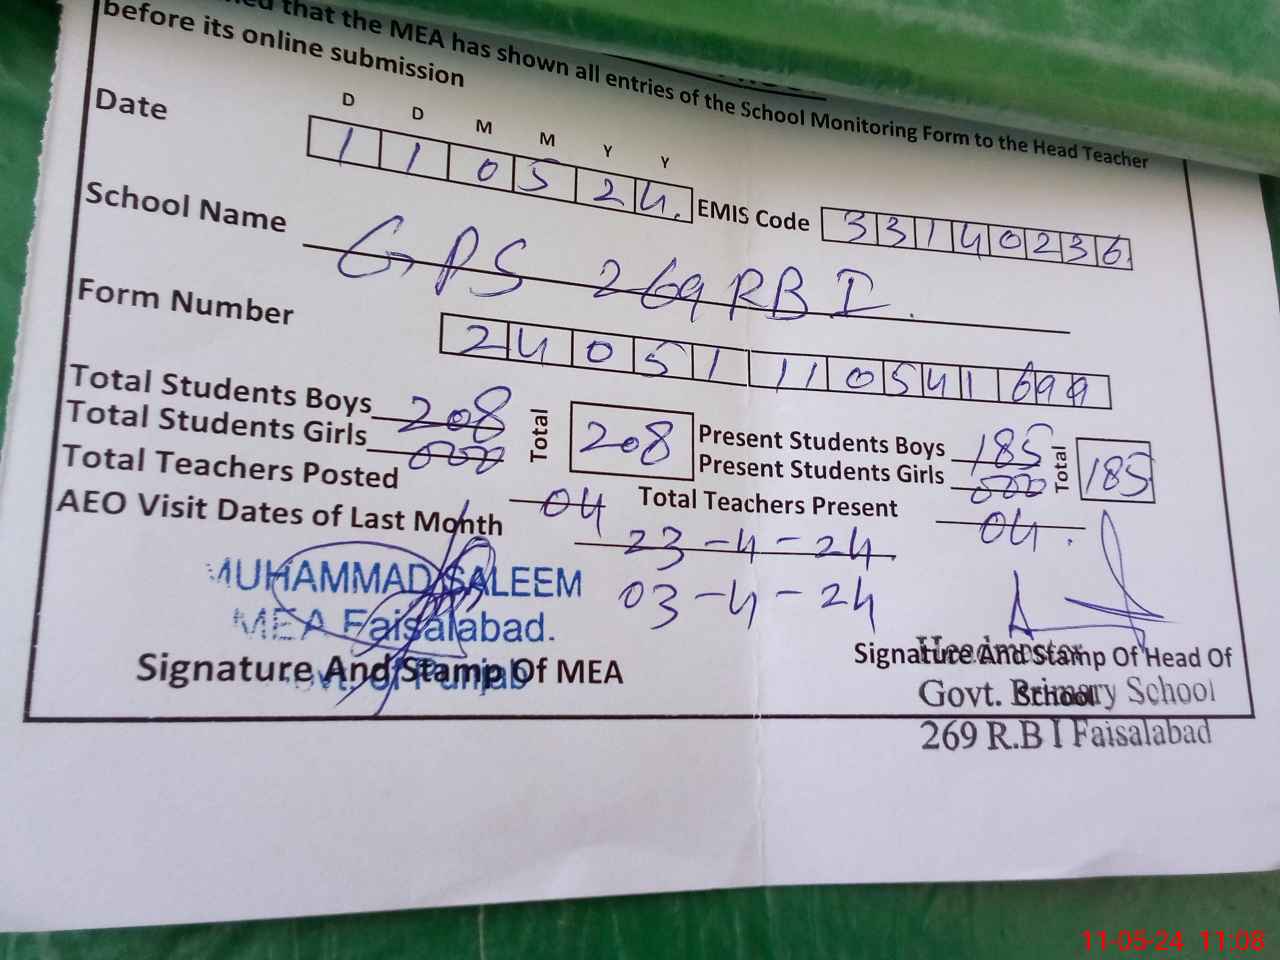 that the MEA has shown all entries of the School Monitoring Form to the Head Teacher
before its online submission
Date D D M M Y Y
1 1 0 5 2 4. EMIS Code 3 3 1 4 0 2 3 6
School Name GPS 269 RB I.
Form Number 2 4 0 5 1 1 1 0 5 4 1 6 9 9
Total Students Boys 208 Total 208 Present Students Boys 185 Total 185
Total Students Girls 000 Present Students Girls 000
Total Teachers Posted 04 Total Teachers Present 04.
AEO Visit Dates of Last Month 23-4-24
03-4-24
MUHAMMAD SALEEM
MEA Faisalabad.
Govt. of Punjab
Signature And Stamp Of MEA
Signature And Stamp Of Head Of
School
Headmaster
Govt. Primary School
269 R.B I Faisalabad
11-05-24 11:08